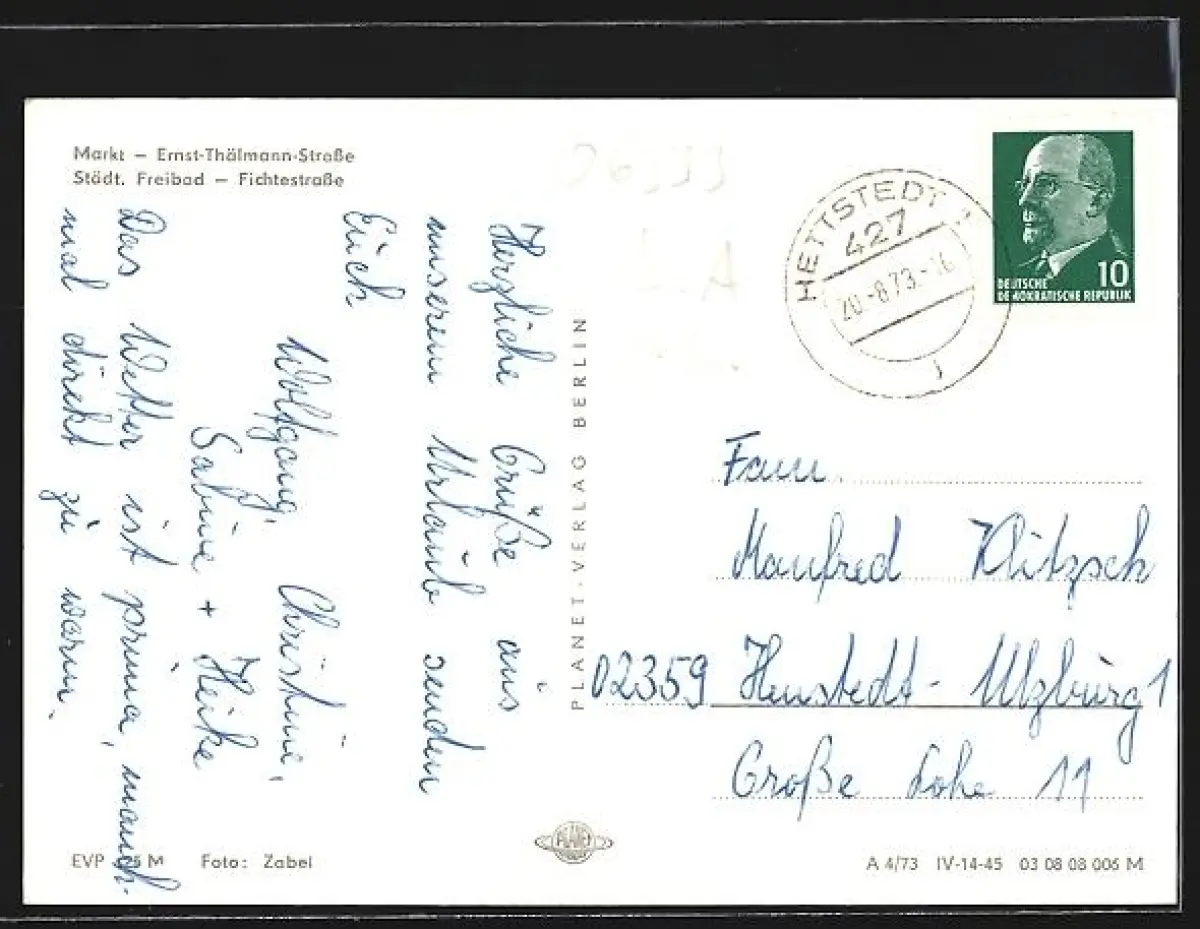 Markt – Ernst-Thälmann-Straße
Städt. Freibad – Fichtestraße
Herzliche Grüße aus
unserem Urlaub senden
Euch
Wolfgang, Christine,
Sabine + Heike
Das Wetter ist prima, manch-
mal direkt zu warm.
PLANET-VERLAG BERLIN
HETTSTEDT 1
427
20.-8.73.-16
j
10
DEUTSCHE
DEMOKRATISCHE REPUBLIK
Fam.
Manfred Klitzsch
02359 Henstedt-Ulzburg 1
Große Lohe 11
PLANET
EVP 25 M Foto: Zabel
A 4/73 IV-14-45 03 08 08 006 M